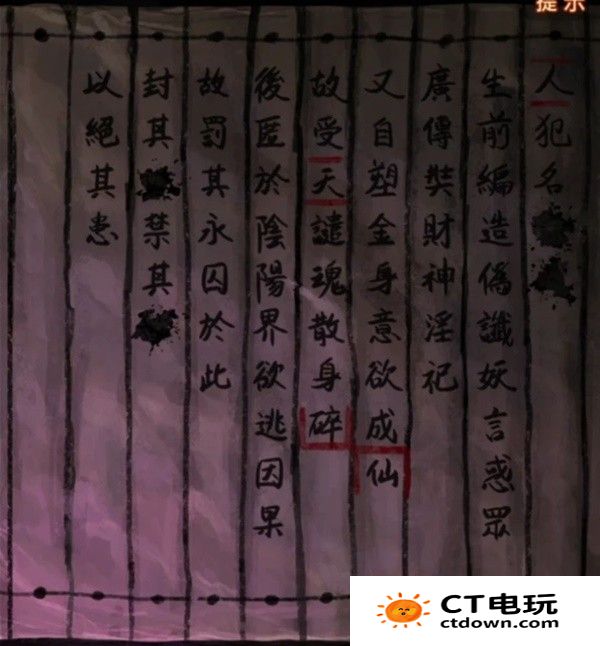 提示
人犯名
生前編造僞讖妖言惑眾
廣傳奘財神淫祀
又自塑金身意欲成仙
故受天譴魂散身碎
後匿於陰陽界欲逃因果
故罰其永囚於此
封其禁其
以絕其患
CT电玩
ctdown.com